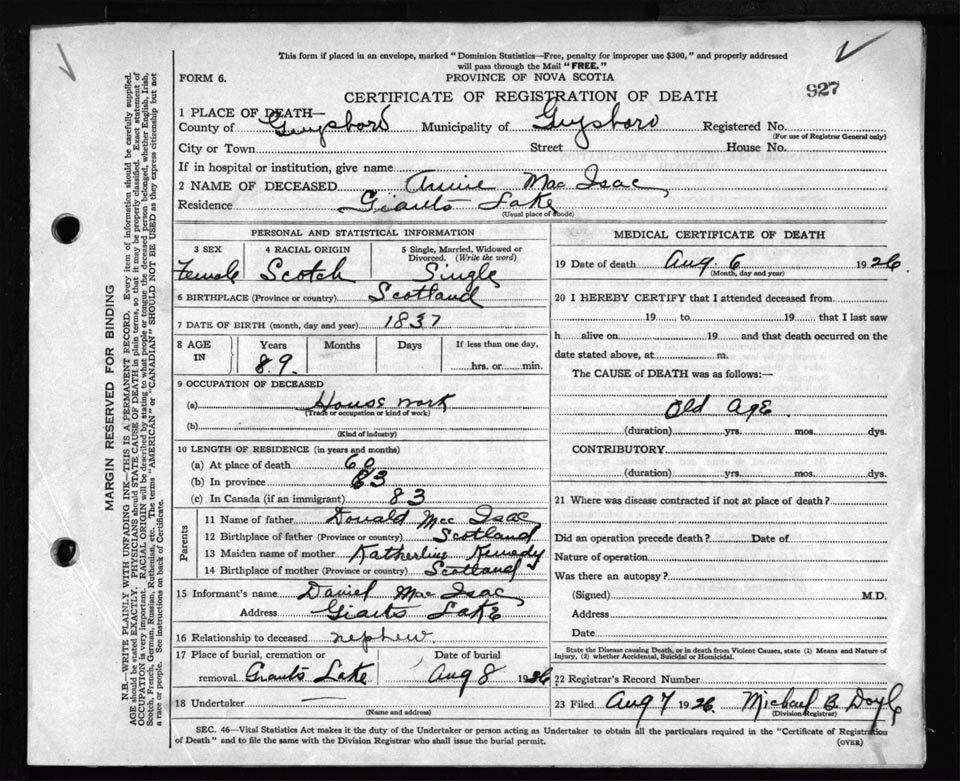 This form if placed in an envelope, marked "Dominion Statistics—Free, penalty for improper use $300," and properly addressed
will pass through the Mail "FREE."
FORM 6.
PROVINCE OF NOVA SCOTIA
927
CERTIFICATE OF REGISTRATION OF DEATH
1 PLACE OF DEATH—
County of Guysboro Municipality of Guysboro Registered No.
(For use of Registrar General only)
City or Town Street House No.
If in hospital or institution, give name
2 NAME OF DECEASED Annie Mac Isac
Residence Giants Lake
(Usual place of abode)
PERSONAL AND STATISTICAL INFORMATION
3 SEX 4 RACIAL ORIGIN 5 Single, Married, Widowed or
Divorced. (Write the word)
Female Scotch Single
6 BIRTHPLACE (Province or country) Scotland
7 DATE OF BIRTH (month, day and year) 1837
8 AGE IN Years Months Days If less than one day,
89 hrs. or min.
9 OCCUPATION OF DECEASED
(a) House work
(Trade or occupation or kind of work)
(b)
(Kind of industry)
10 LENGTH OF RESIDENCE (in years and months)
(a) At place of death 60
(b) In province 83
(c) In Canada (if an immigrant) 83
Parents
11 Name of father Donald Mac Isac
12 Birthplace of father (Province or country) Scotland
13 Maiden name of mother Katherline Kennedy
14 Birthplace of mother (Province or country) Scotland
15 Informant's name Daniel Mac Isac
Address Giants Lake
16 Relationship to deceased nephew.
17 Place of burial, cremation or Date of burial
removal Giants Lake Aug 8 1926
18 Undertaker —
(Name and address)
MEDICAL CERTIFICATE OF DEATH
19 Date of death Aug. 6 1926
(Month, day and year)
20 I HEREBY CERTIFY that I attended deceased from
19 to 19 that I last saw
h alive on 19 and that death occurred on the
date stated above, at m.
The CAUSE of DEATH was as follows:—
Old Age
(duration) yrs. mos. dys.
CONTRIBUTORY
(duration) yrs. mos. dys.
21 Where was disease contracted if not at place of death?
Did an operation precede death? Date of
Nature of operation
Was there an autopsy?
(Signed) M.D.
Address
Date
State the Disease causing Death, or in death from Violent Causes, state (1) Means and Nature of
Injury, (2) whether Accidental, Suicidal or Homicidal.
22 Registrar's Record Number
23 Filed Aug 7 1926. Michael B. Doyle
(Division Registrar)
SEC. 46—Vital Statistics Act makes it the duty of the Undertaker or person acting as Undertaker to obtain all the particulars required in the "Certificate of Registration
of Death" and to file the same with the Division Registrar who shall issue the burial permit.
(OVER)
MARGIN RESERVED FOR BINDING
N.B.—WRITE PLAINLY WITH UNFADING INK—THIS IS A PERMANENT RECORD. Every item of information should be carefully supplied.
AGE should be stated EXACTLY. PHYSICIANS should STATE CAUSE OF DEATH in plain terms, so that it may be properly classified. Exact statement of
OCCUPATION is very important. RACIAL ORIGIN will be described by stating to what people or tongue the deceased person belonged, whether English, Irish,
Scotch, French, German, Russian, Ruthenian, etc. The terms "AMERICAN" or "CANADIAN" SHOULD NOT BE USED as they express citizenship but not
a race or people. See instructions on back of Certificate.